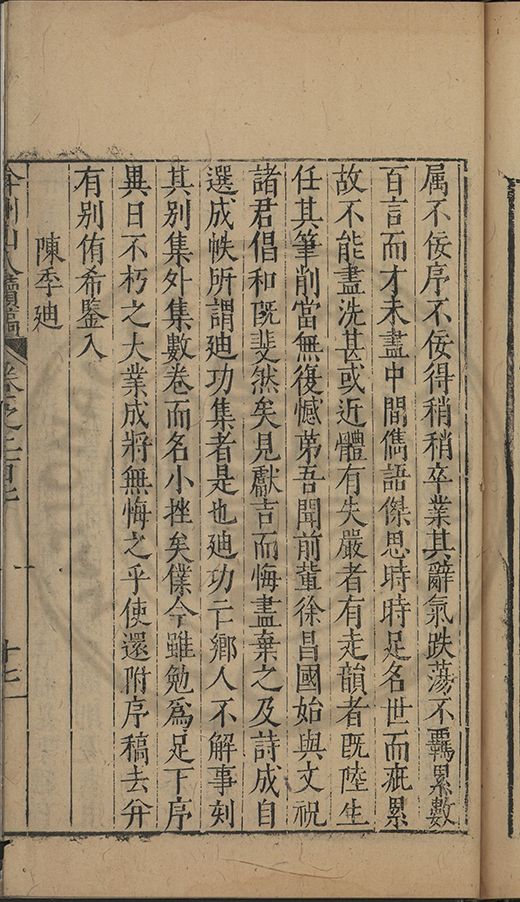 属不佞序不佞得稍稍卒業其辭氣跌蕩不羈累數
百言而才未盡中間儁語傑思時時足名世而疵累
故不能盡洗甚或近體有失嚴者有走韻者既陸生
任其筆削當無復憾苐吾聞前輩徐昌國始與文祝
諸君倡和既斐然矣見獻吉而悔盡棄之及詩成自
選成帙所謂廸功集者是也廸功亡鄉人不解事刻
其别集外集數卷而名小挫矣僕今雖勉爲足下序
異日不朽之大業成將無悔之乎使還附序稿去并
有别侑希鑒入
陳季廸
弇州山人續稿 卷之二百七 十七